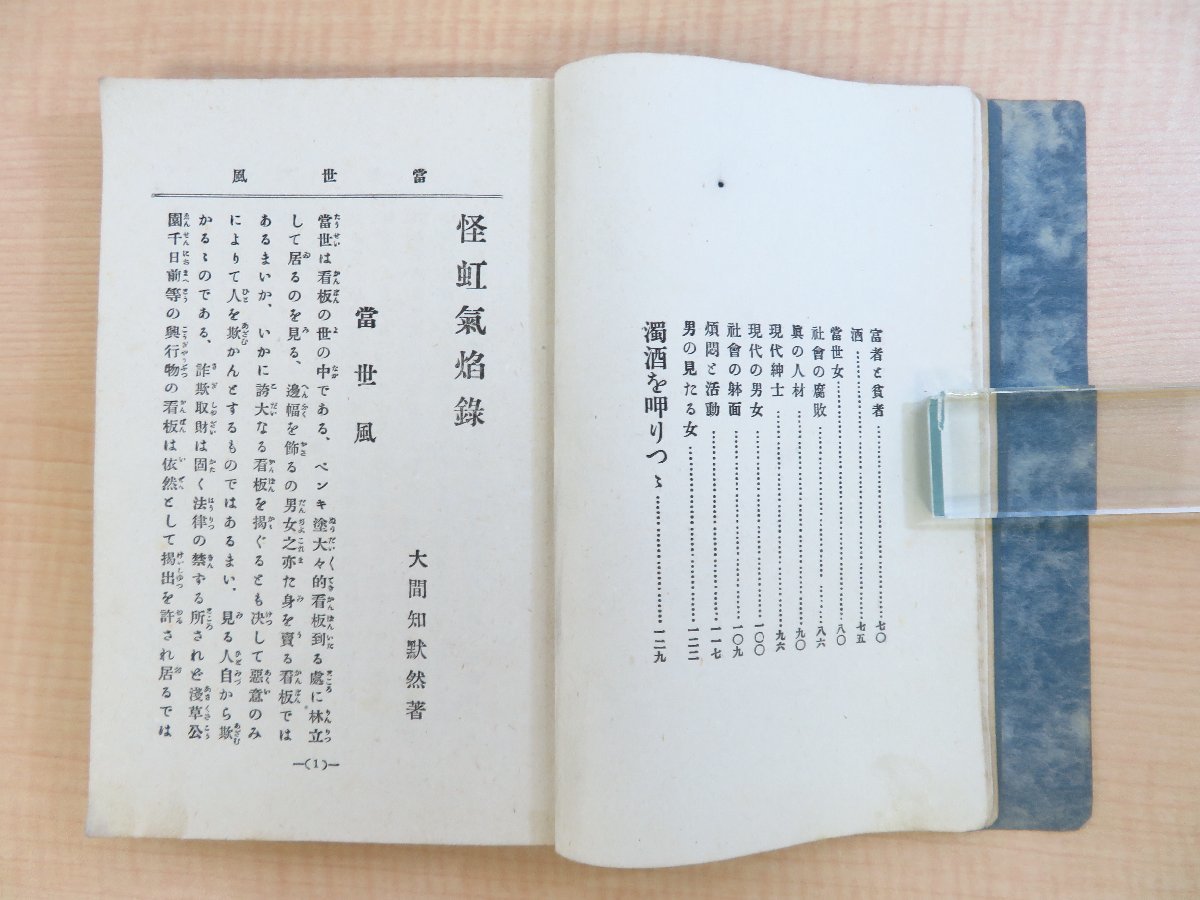 富者と貧者……七〇
酒……七五
當世女……八〇
社會の腐敗……八六
眞の人材……九〇
現代紳士……九六
現代の男女……一〇〇
社會の躰面……一〇九
煩悶と活動……一一七
男の見たる女……一二二
濁酒を呷りつゝ……一二九
當世風
怪虹氣焰錄
大間知默然著
當世風
當世は看板の世の中である、ペンキ塗大々的看板到る處に林立
して居るのを見る、邊幅を飾るの男女之亦た身を賣る看板では
あるまいか、いかに誇大なる看板を揭ぐるとも决して惡意のみ
によりて人を欺かんとするものではあるまい、見る人自から欺
かるゝのである、詐欺取財は固く法律の禁ずる所されど淺草公
園千日前等の興行物の看板は依然として揭出を許され居るでは
—(1)—